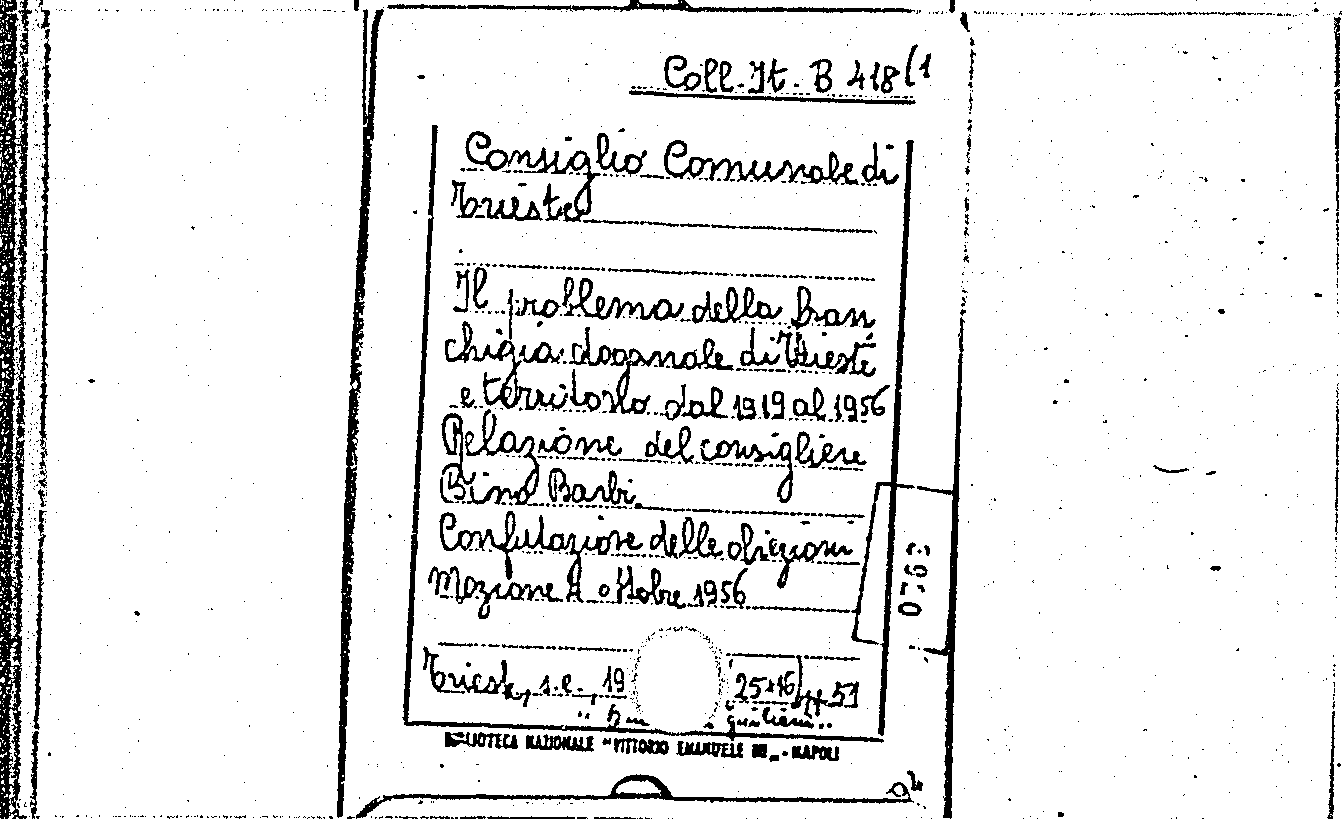 Coll. It. B 418 (1
Consiglio Comunale di
Trieste
Il problema della fran
chigia doganale di Trieste
e territorio dal 1919 al 1956
Relazione del consigliere
Bino Barbi.
Confutazione delle obiezioni
Mozione 2 ottobre 1956
0763
Trieste, s.e., 19 25x16, pp. 51
giuliani"
BIBLIOTECA NAZIONALE "VITTORIO EMANUELE III" - NAPOLI